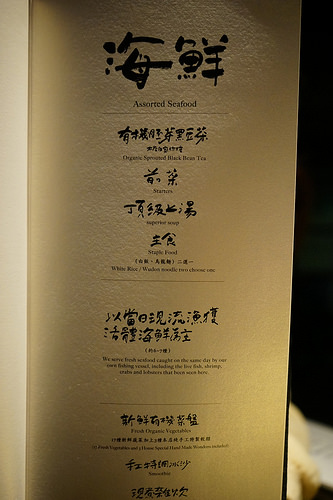 海鮮
Assorted Seafood
有機胚芽黑豆茶
Organic Sprouted Black Bean Tea
前菜
Starters
頂級上湯
superior soup
主食
Staple Food
(白飯、烏龍麵) 二選一
White Rice / Wudon noodle two choose one
以當日現流漁獲
活體海鮮為主
(約6~7種)
We serve fresh seafood caught on the same day by our
own fishing vessel, including the live fish, shrimp,
crabs and lobsters that been seen here.
新鮮有機菜盤
Fresh Organic Vegetables
手工特調冰沙
Smoothie